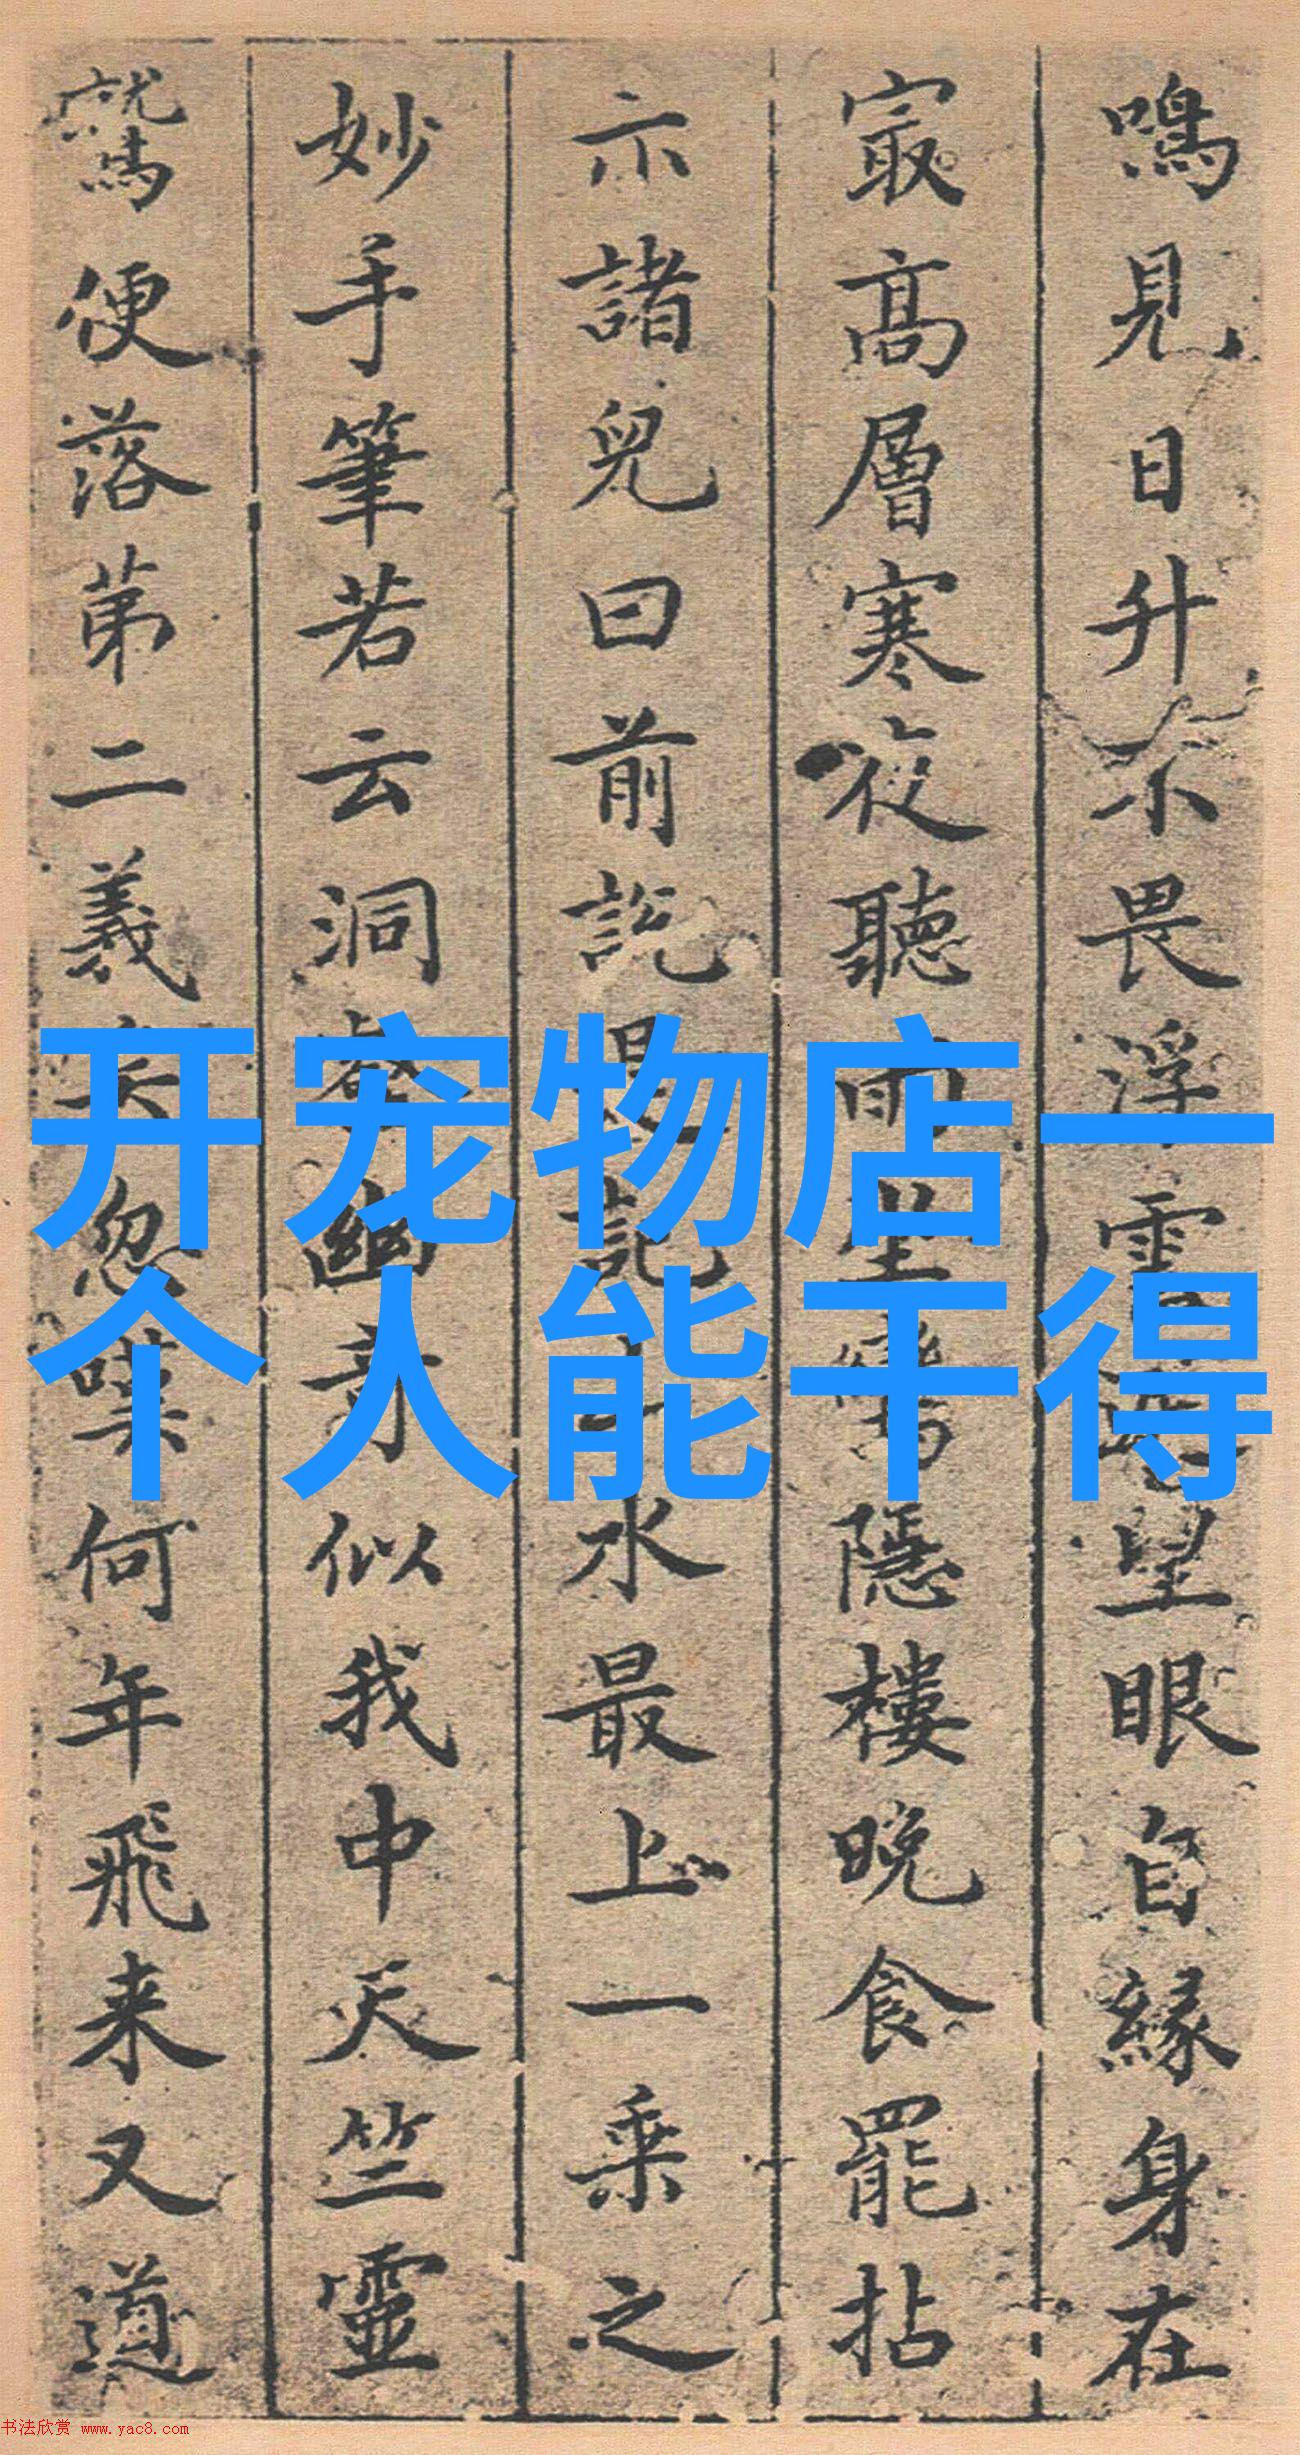 鳴見日升不畏浮雲遮望眼自緣身在
寂高層寒夜聽雨坐舊隱樓晚食罷拈
示諸兒曰前說是記山水最上一乘之
妙手筆若云洞壑幽奇似我中天竺靈
鷲便落苐二義矣忽嘆何年飛来又道
开宠物店一
个人能干得
书法欣赏 www.yac8.com